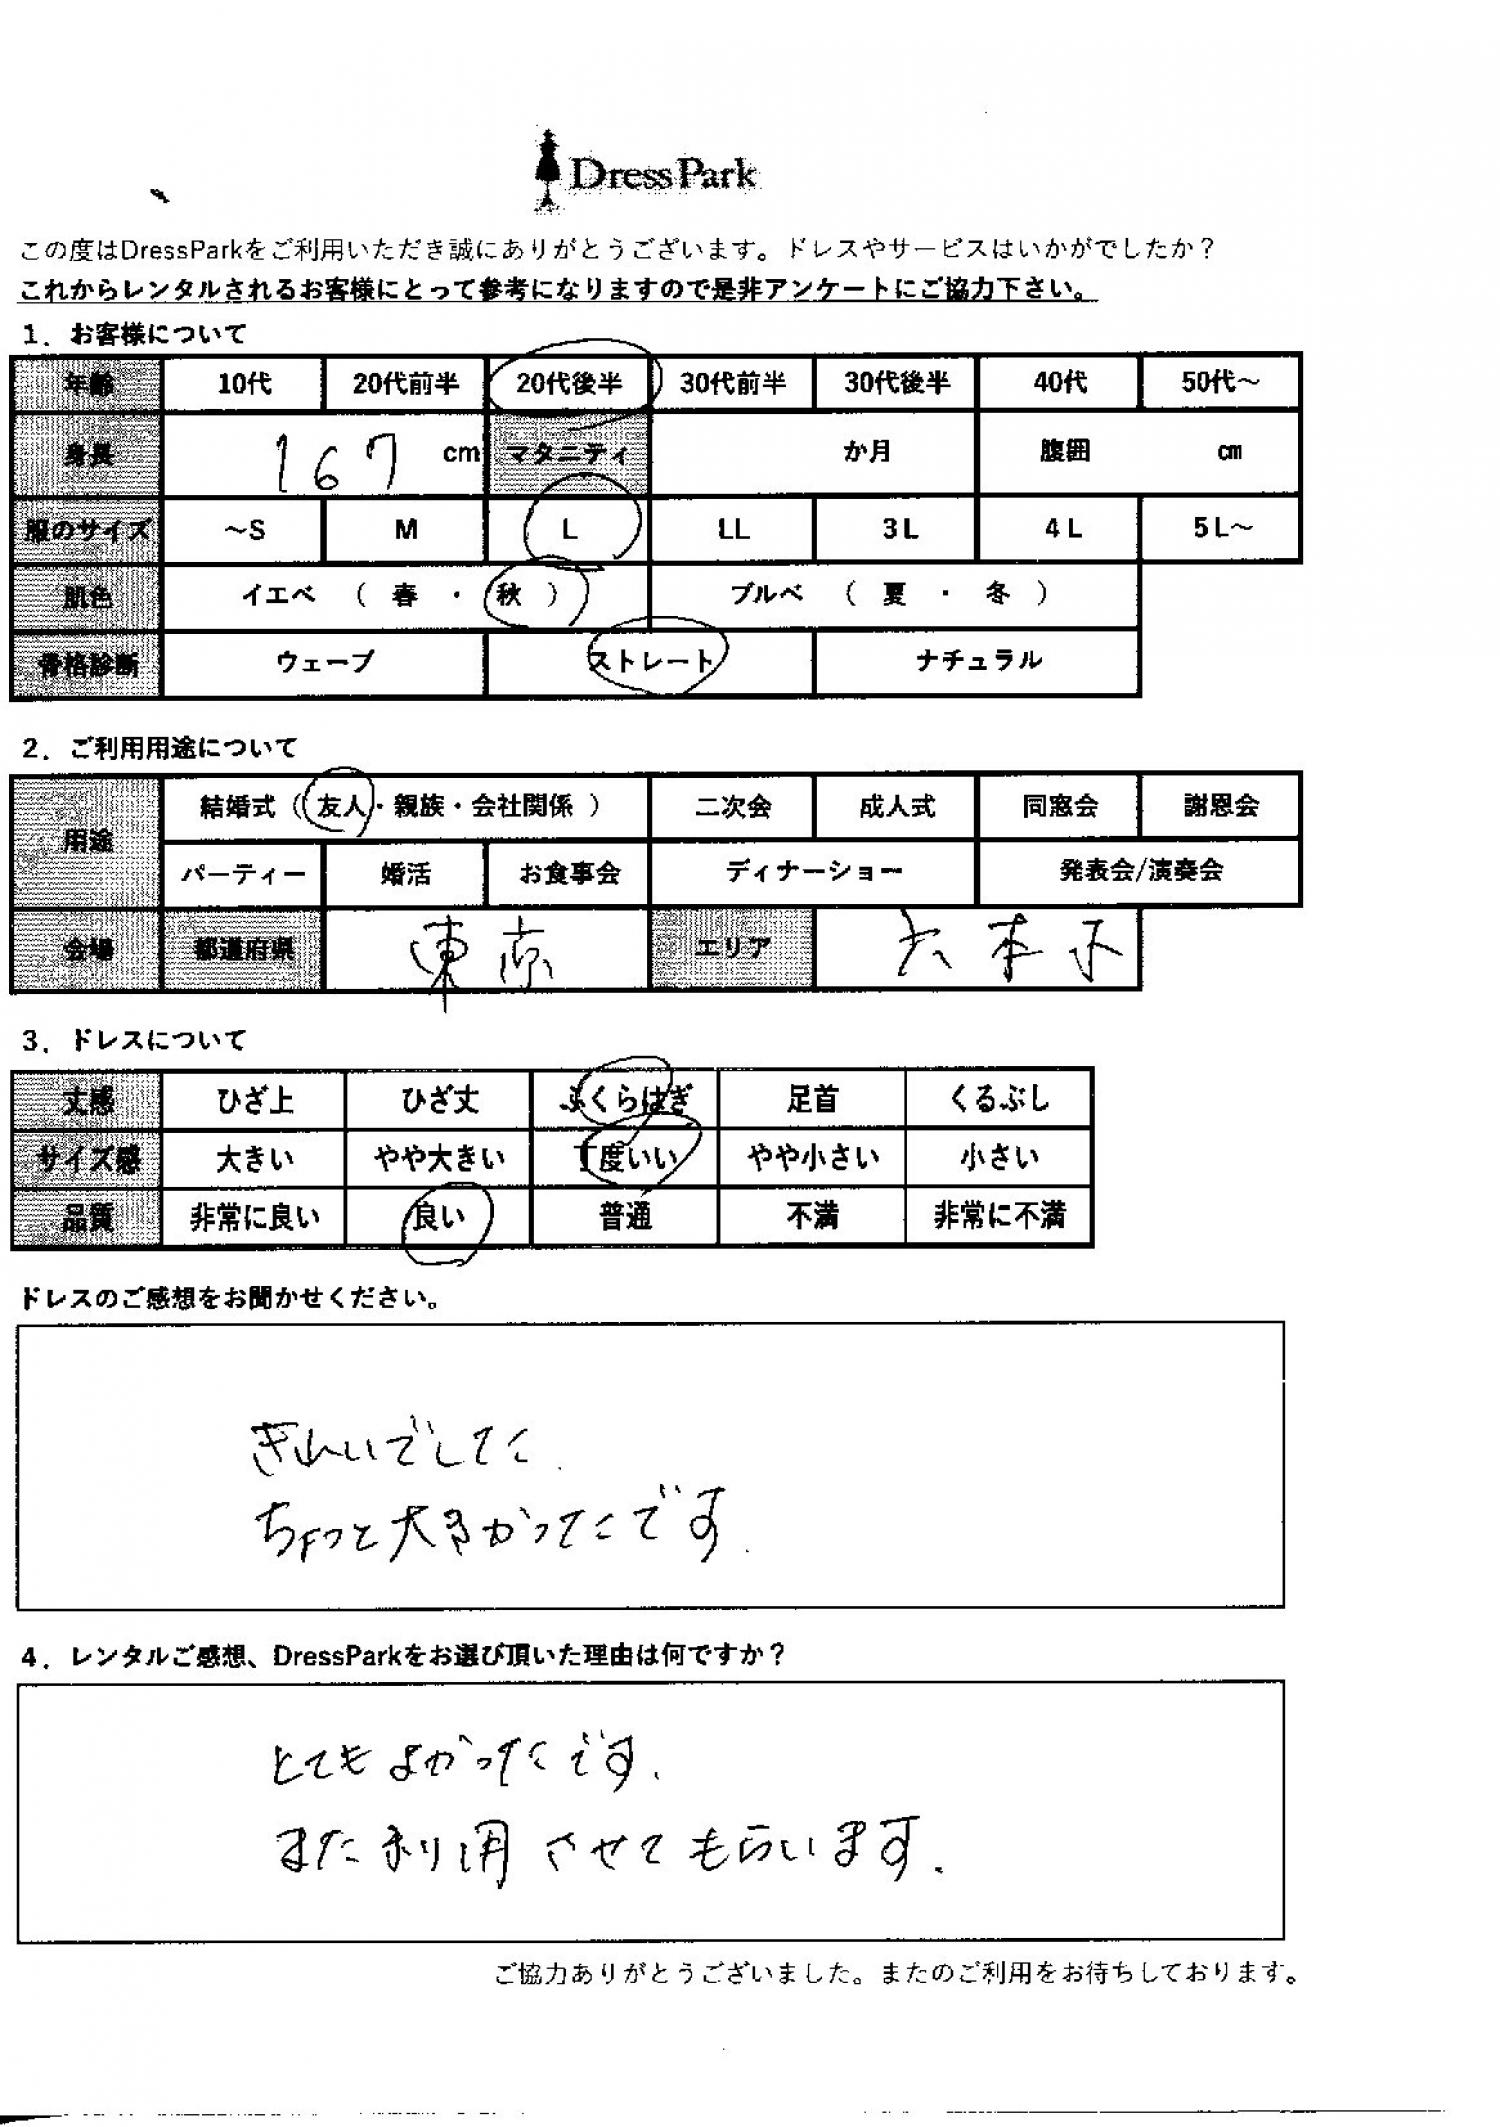 DressPark
この度はDressParkをご利用いただき誠にありがとうございます。ドレスやサービスはいかがでしたか？
これからレンタルされるお客様にとって参考になりますので是非アンケートにご協力下さい。
1．お客様について
年齢 10代 20代前半 20代後半 30代前半 30代後半 40代 50代～
身長 167 cm マタニティ か月 腹囲 ㎝
服のサイズ ～S M L LL 3L 4L 5L～
肌色 イエベ （ 春 ・ 秋 ） ブルベ （ 夏 ・ 冬 ）
骨格診断 ウェーブ ストレート ナチュラル
2．ご利用用途について
用途 結婚式（ 友人・親族・会社関係 ） 二次会 成人式 同窓会 謝恩会
パーティー 婚活 お食事会 ディナーショー 発表会/演奏会
会場 都道府県 東京 エリア 六本木
3．ドレスについて
丈感 ひざ上 ひざ丈 ふくらはぎ 足首 くるぶし
サイズ感 大きい やや大きい 丁度いい やや小さい 小さい
品質 非常に良い 良い 普通 不満 非常に不満
ドレスのご感想をお聞かせください。
きれいでした.
ちょっと大きかったです.
4．レンタルご感想、DressParkをお選び頂いた理由は何ですか？
とてもよかったです.
また利用させてもらいます.
ご協力ありがとうございました。またのご利用をお待ちしております。